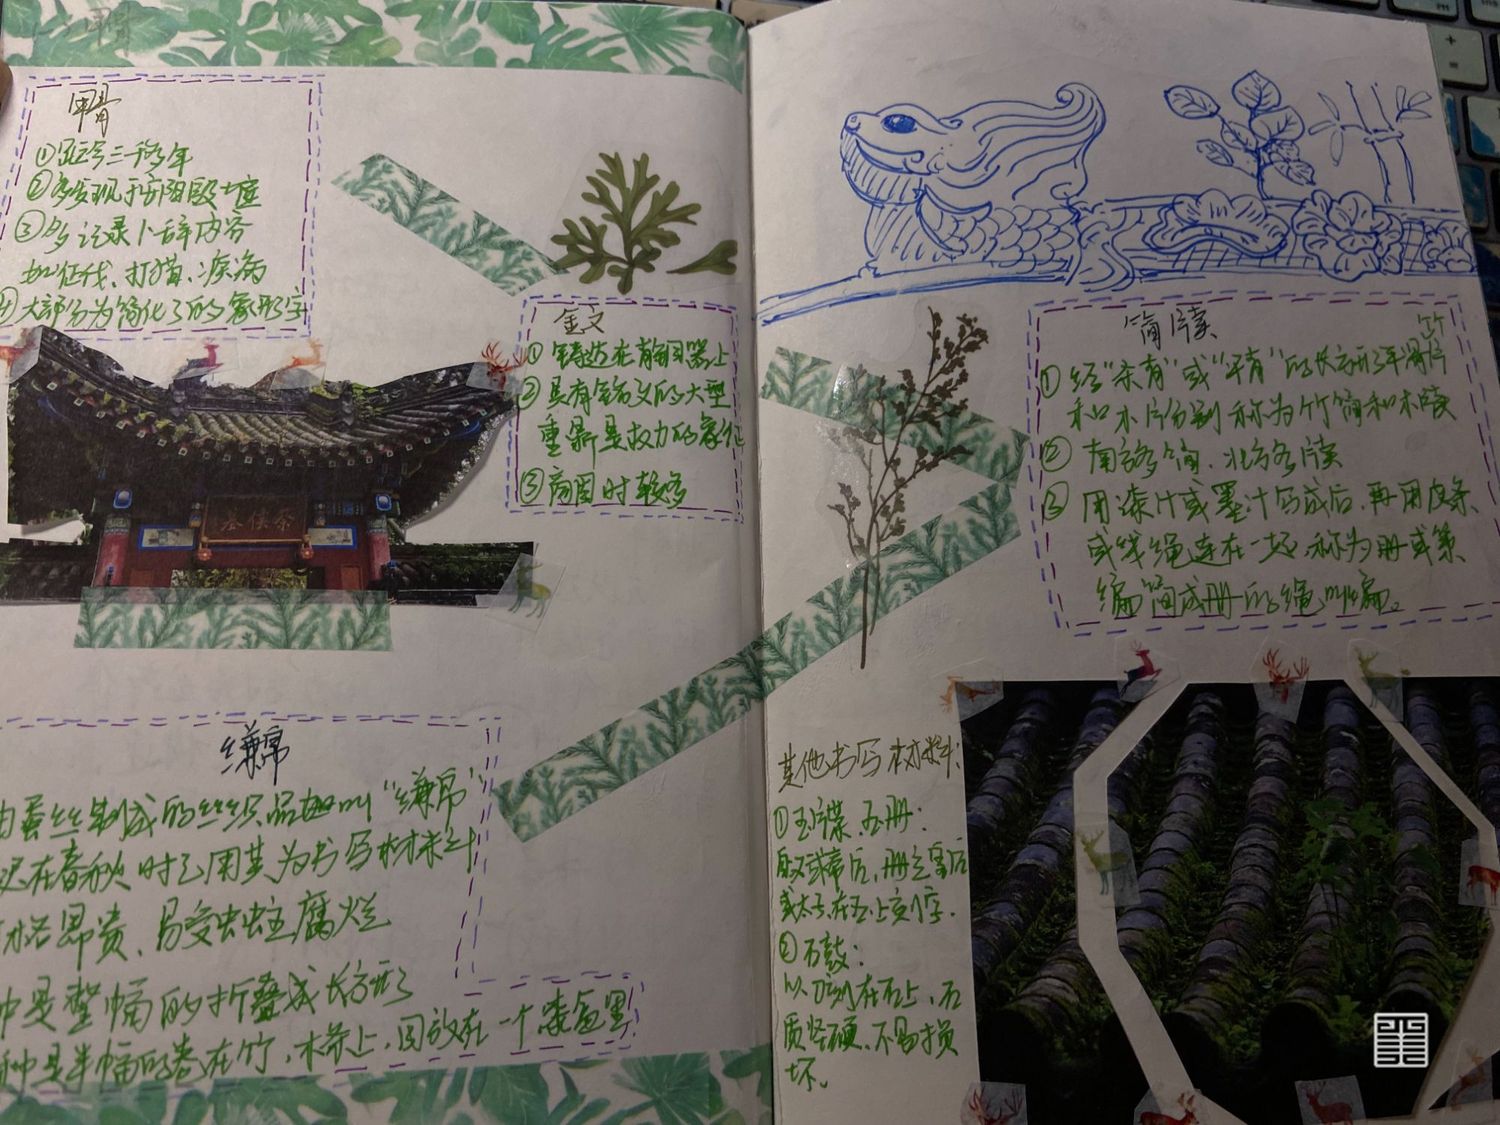 甲骨
①距今三千多年
②多发现于安阳殷墟
③多记录卜辞内容
如征伐、打猎、疾病
④大部分为简化了的象形字
金文
①铸造在青铜器上
②具有铭文的大型
重鼎是权力的象征
③商周时较多
蔡侯墓
缣帛
由蚕丝制成的丝织品起叫“缣帛”
迟在春秋时已用其为书写材料
价格昂贵、易受虫蛀腐烂
一种是整幅的折叠成长方形
种是半幅的卷在竹、木条上,因放在一个漆盒里
竹
简牍
①经“杀青”或“汗青”的长方形薄片
和木片分别称为竹简和木牍
②南方多简、北方多牍
③用漆汁或墨汁写成后,再用皮条、
或丝绳连在一起称为册或策
编简成册的绳叫编。
其他书写材料:
①玉牒、玉册:
取又或帝后,册立皇后
或太子,在玉上刻字.
②石鼓:
以刀刻在石上,石
质坚硬、不易损
坏。